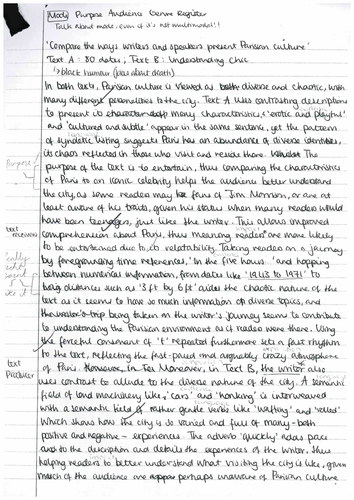 Mode Purpose Audience Genre Register
Talk about mode, even if it's not multimodal!!
'Compare the ways writers and speakers present Parisian culture'
Text A: 80 dates, Text B: Understanding Chic
↳ black humour (jokes about death)
In both texts, Parisian culture is viewed as both diverse and chaotic, with
many different personalities to the city. Text A uses contrasting descriptions
to present its many characteristics, 'erotic and playful'
and 'cultured and subtle' appear in the same sentence, yet the pattern
of syndetic listing suggests Paris has an abundance of diverse identities,
its chaos reflected in those who visit and reside there. The
Purpose
purpose of the text is to entertain, thus comparing the characteristics
of Paris to an iconic celebrity helps the audience better understand
the city, as some readers may be fans of Jim Morrison, or are at
least aware of his traits, given his status when many readers would
have been teenagers, just like the writer. This allows improved
text receivers
comprehension about Paris, thus meaning readers are more likely
to be entertained due to relatability. Taking readers on a journey
by foregrounding time references, 'In the five hours' and hopping
between numerical information, from dates like '1943 to 1971' to
distances such as '3ft by 6ft' aides the chaotic nature of the
text as it seems to have so much information of diverse topics, and
being taken on the writer's journey seems to contribute
to understanding the Parisian environment as if readers were there. Using
the forceful consonant of 't' repeated furthermore sets a fast rhythm
to the text, reflecting the fast-paced and arguably crazy atmosphere
text producer
of Paris. Moreover, in Text B, the writer also
uses contrast to allude to the diverse nature of the city. A semantic
field of loud machinery like 'cars' and 'honking' is interweaved
with a semantic field of rather gentle verbs like 'wafting' and 'rolled'
which shows how the city is so varied and full of many - both
positive and negative - experiences. The adverb 'quickly' adds pace
to the description and details the experiences of the writer, thus
helping readers to better understand what visiting the city is like, given
much of the audience are perhaps unaware of Parisian culture